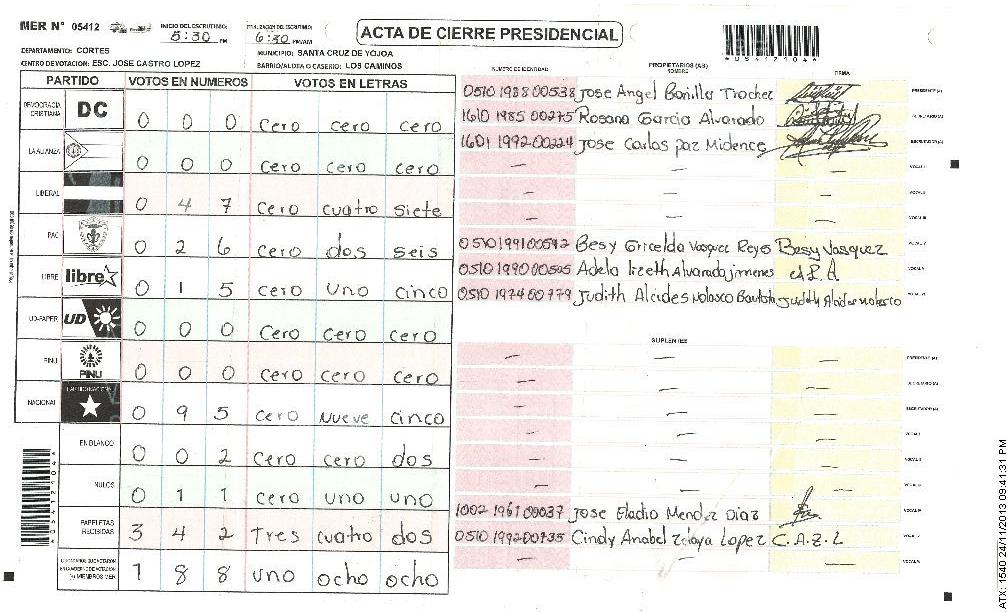 MER N° 05412
INICIO DEL ESCRUTINIO:
5:30 PM
6:30 PM/AM
ACTA DE CIERRE PRESIDENCIAL
*05412104*
DEPARTAMENTO: CORTES
MUNICIPIO: SANTA CRUZ DE YOJOA
CENTRO DE VOTACION: ESC. JOSE CASTRO LOPEZ
BARRIO/ALDEA O CASERIO: LOS CAMINOS
PARTIDO VOTOS EN NUMEROS VOTOS EN LETRAS
NUMERO DE IDENTIDAD PROPIETARIOS (AS) NOMBRE FIRMA
DEMOCRACIA CRISTIANA DC 0 0 0 cero cero cero
LA ALIANZA 0 0 0 cero cero cero
LIBERAL 0 4 7 cero cuatro siete
PAC 0 2 6 cero dos seis
LIBRE libre 0 1 5 cero uno cinco
UD-FAPER UD 0 0 0 cero cero cero
PINU PINU 0 0 0 cero cero cero
NACIONAL PARTIDO NACIONAL 0 9 5 cero nueve cinco
EN BLANCO 0 0 2 cero cero dos
NULOS 0 1 1 cero uno uno
PAPELETAS RECIBIDAS 3 4 2 Tres cuatro dos
(+) MIEMBROS MER 1 8 8 uno ocho ocho
0510 1988 00538 Jose Angel Bonilla Trochez PRESIDENTE (A)
1610 1985 00275 Rosana Garcia Alvarado SECRETARIO (A)
1601 1992-00224 Jose Carlos paz Midence ESCRUTADOR (A)
— — — VOCAL I
— — — VOCAL II
— — — VOCAL III
0510 1991 00592 Besy Gricelda Vasquez Reyes Besy Vasquez
0510 1990 00505 Adela lizeth Alvarado jimenes A.L.A
0510 1974 00779 Judith Alcides Velasco Bautista Judith Alcides Velasco
SUPLENTES
— — — PRESIDENTE (A)
— — — SECRETARIO (A)
— — — ESCRUTADOR (A)
— — — VOCAL I
— — — VOCAL II
— — —
1002 1961 00037 Jose Eladio Mendez Diaz
0510 1992 00735 Cindy Anabel Zelaya Lopez C.A.Z.L
*05412104*
ATX: 1540 24/11/2013 09:41:31 PM